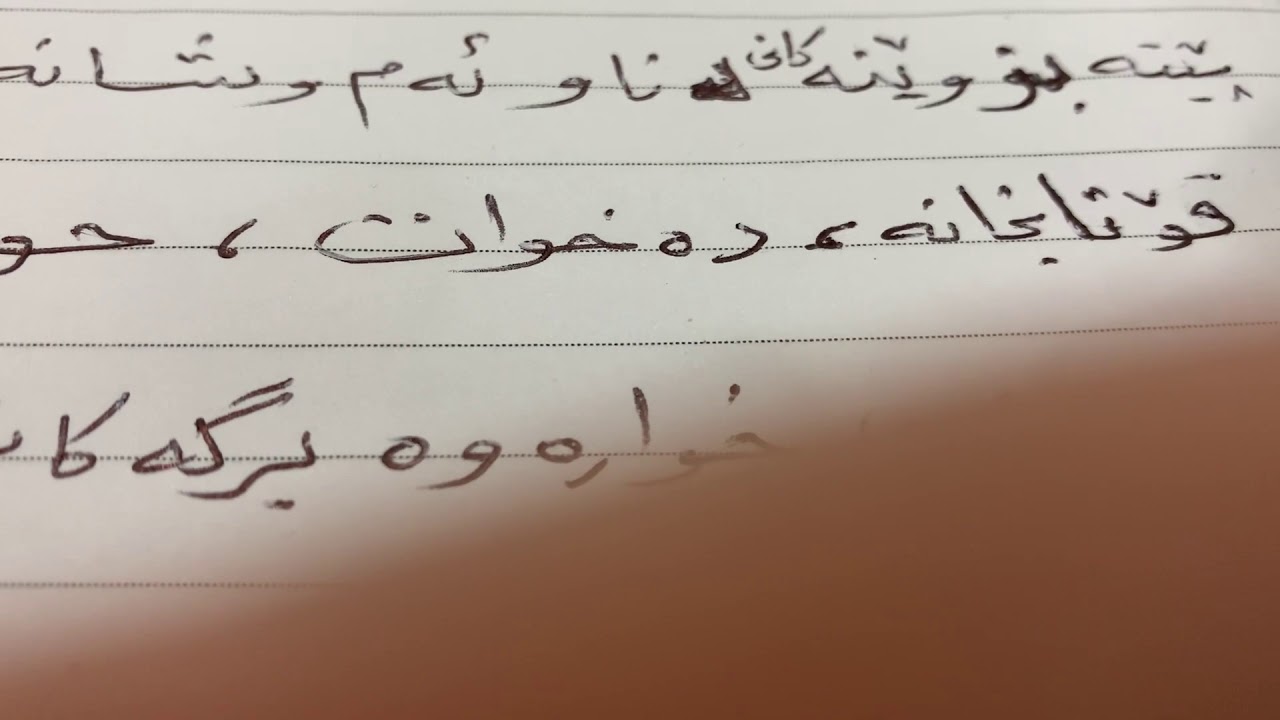 پێتە بزوێنەکانی ناو ئەم وشانە
قوتابخانە، دەخوات، حو
خوارەوە بڕگەکا